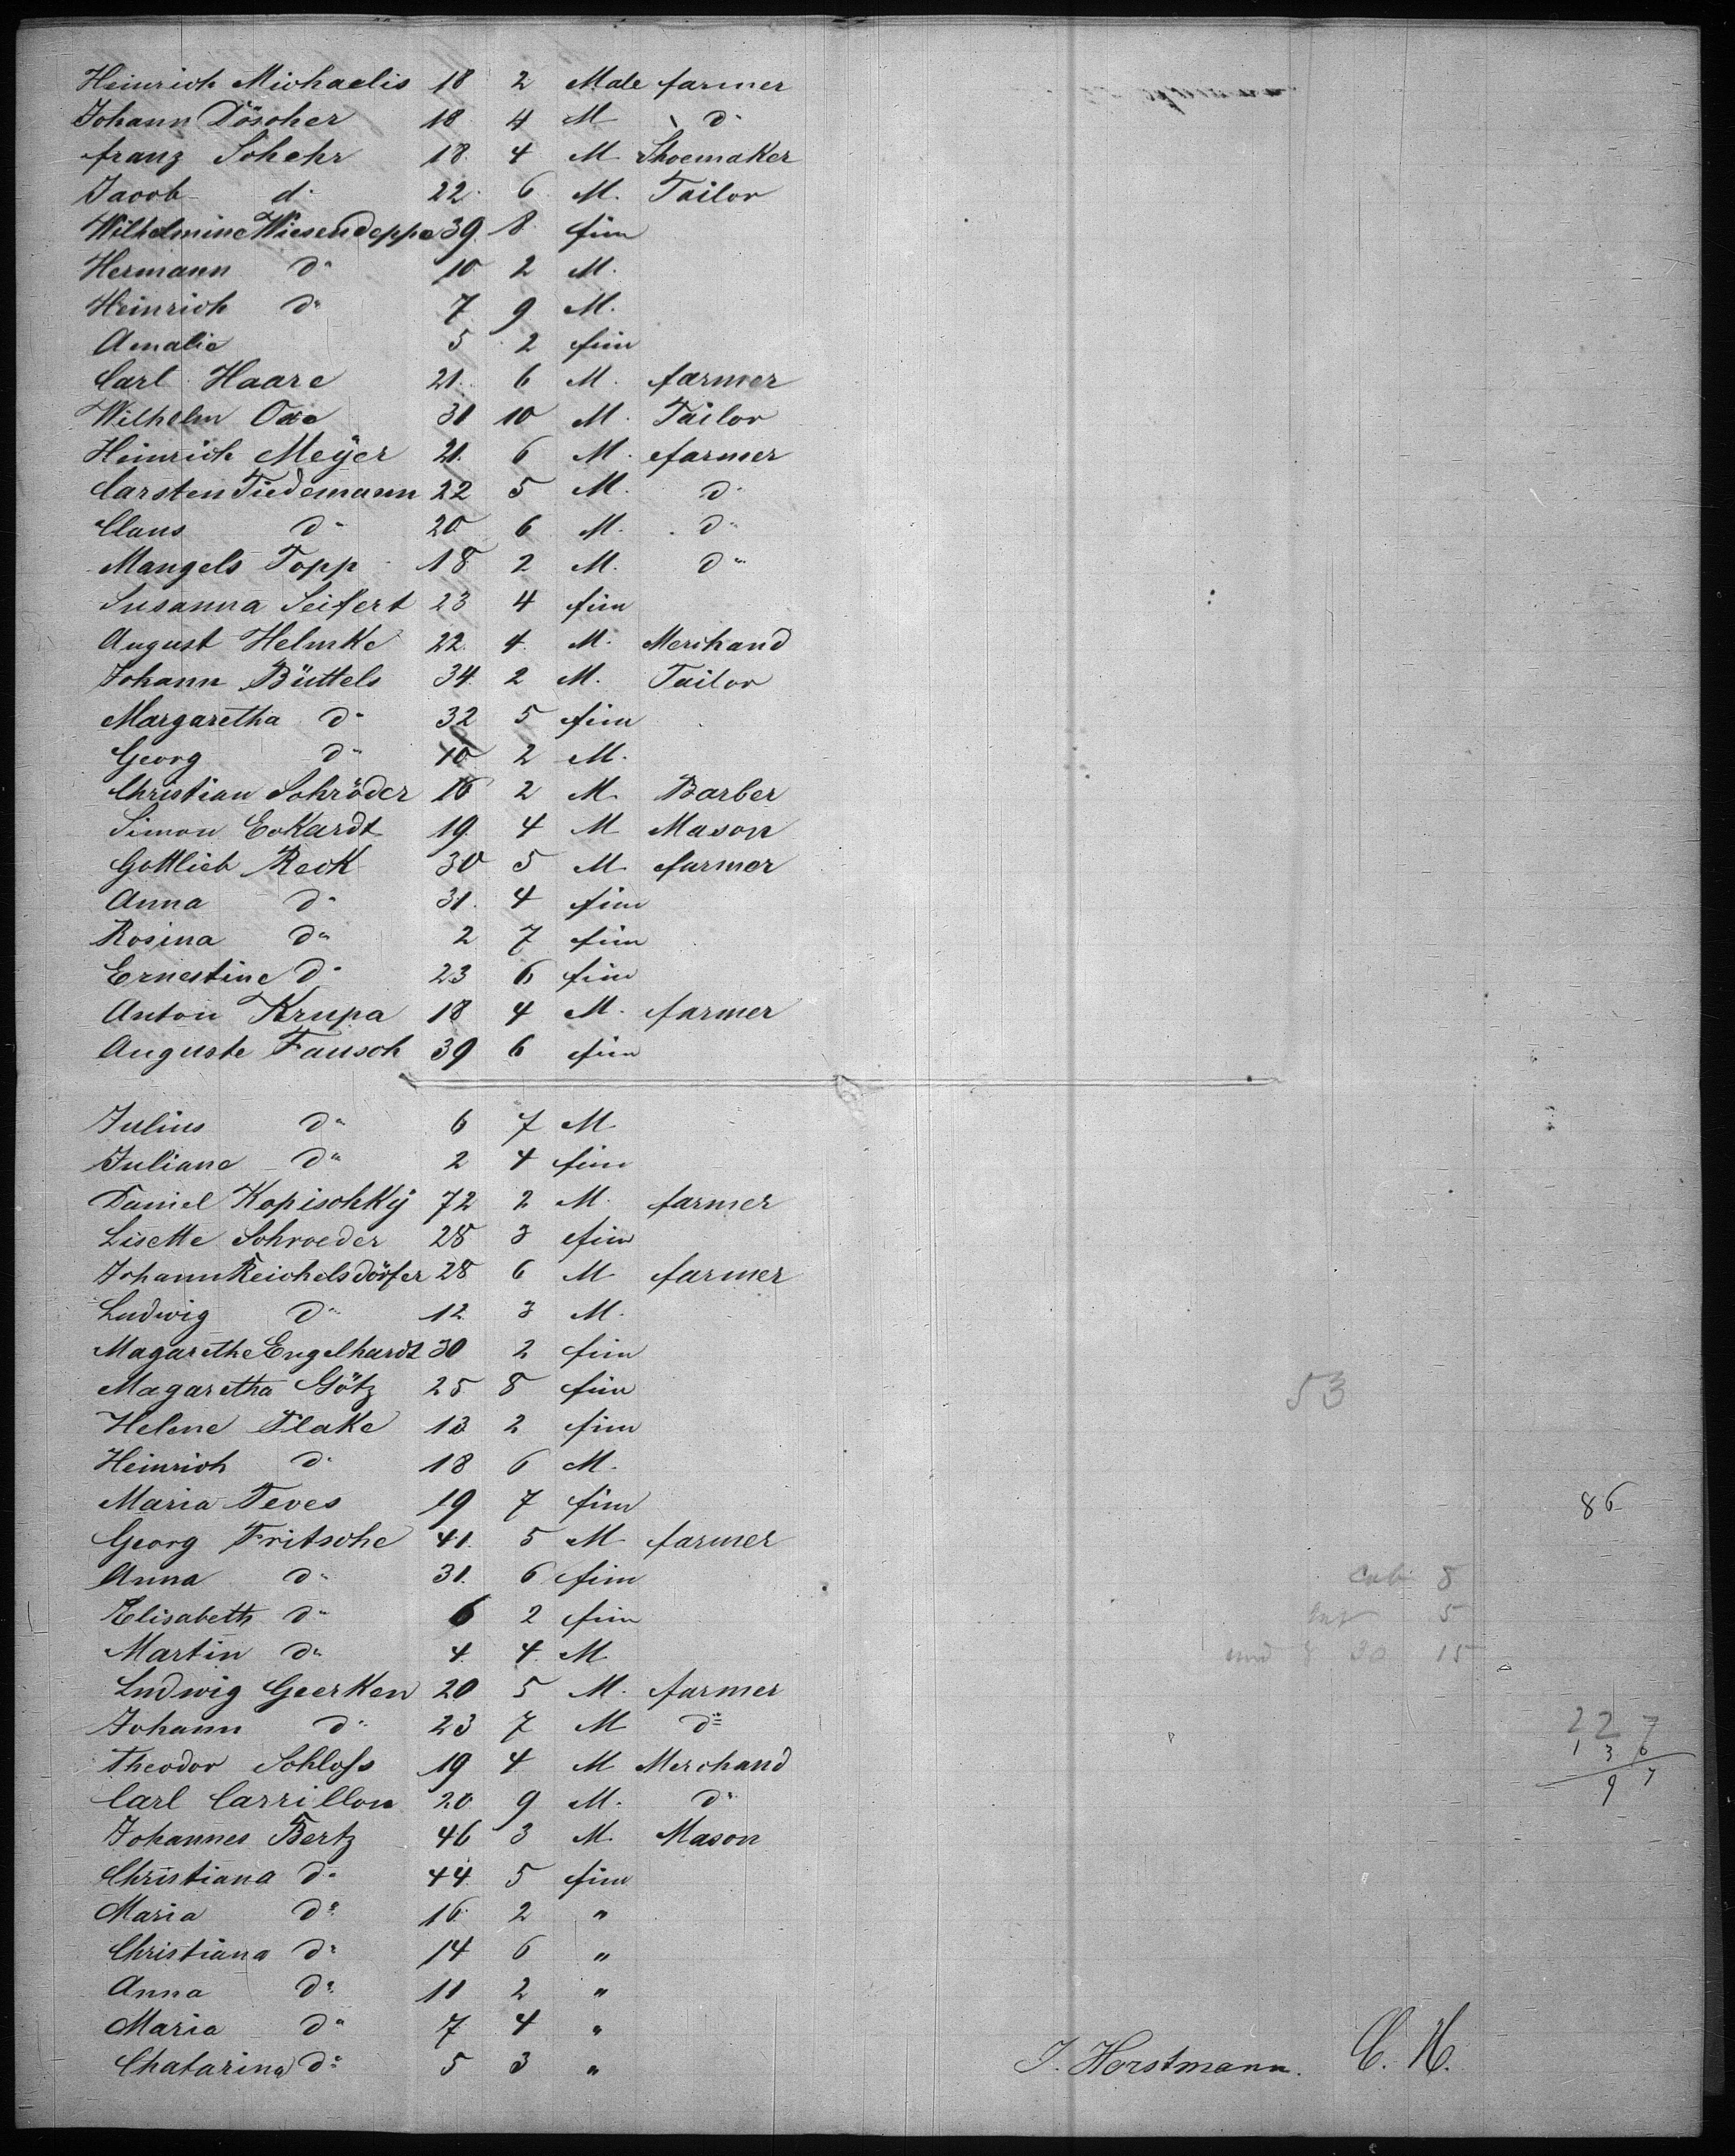 Heinrich Michaelis 18 2 Male farmer
Johann Döscher 18 4 M do
franz Schehr 18 4 M Shoemaker
Jacob do 22 6 M. Tailor
Wilhelmine Wiesendeppe 39 8 fem
Hermann do 10 2 M.
Heinrich do 7 9 M.
Amalie 5 2 fem
Carl Haare 21 6 M. farmer
Wilhelm 31 10 M. Tailor
Heinrich Meyer 21 6 M. farmer
Carsten Tiedemann 22 5 M. do
Claus do 20 6 M. do
Mangels Topp 18 2 M. do
Susanna Seifert 23 4 fem
August Helmke 22 4 M. Merchand
Johann Büttels 34 2 M. Tailor
Margaretha do 32 5 fem
Georg do 10 2 M.
Christian Schröder 16 2 M. Barber
Simon Eckardt 19 4 M Mason
Gottlieb Reck 30 5 M. farmer
Anna do 31 4 fem
Rosina do 2 7 fem
Ernestine do 23 6 fem
Anton Krupa 18 4 M. farmer
Auguste Fausch 39 6 fem
Julius do 6 7 M
Juliane do 2 4 fem
Daniel Kopischky 72 2 M. farmer
Lisette Schroeder 28 3 fem
Johann Reichelsdörfer 28 6 M farmer
Ludwig do 12 3 M.
Magarethe Engelhardt 30 2 fem
Magaretha Götz 25 8 fem
53
Helene Flake 13 2 fem
Heinrich do 18 6 M.
Maria Teves 19 7 fem
86
Georg Fritsche 41 5 M farmer
Anna do 31 6 fem
Cab 8
Elisabeth do 6 2 fem
5
Martin do 4 4 M
30 15
Ludwig Geerken 20 5 M. farmer
Johann do 23 7 M do
227
136
97
Theodor Schloss 19 4 M Merchand
Carl Carrillon 20 9 M. do
Johannes Bertz 46 3 M. Mason
Christiana do 44 5 fem
Maria do 16 2 "
Christiana do 14 6 "
Anna do 11 2 "
Maria do 7 4 "
Chatarina do 5 3 "
J. Horstmann. C. H.